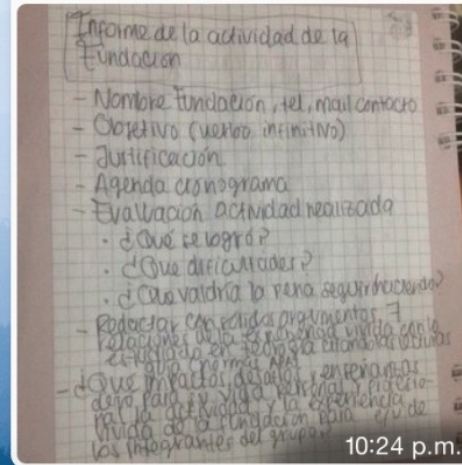 Informe de la actividad de la
Fundación
- Nombre fundación, tel, mail contacto
- Objetivo (verbo infinitivo)
- Justificación
- Agenda cronograma
- Evaluación actividad realizada
· ¿Qué se logró?
· ¿Que dificultades?
· ¿Que valdría la pena seguir haciendo?
- Redactar con sólidos argumentos, 7
relaciones de la experiencia vivida con lo
estudiado en teología citando las lecturas
guía (normas APA)
- ¿Que impactos, desafíos y enseñanzas
dejó para su vida personal y profesio-
nal la actividad y la experiencia
vivida de la fundación para c/u de
los integrantes del grupo?
10:24 p.m.